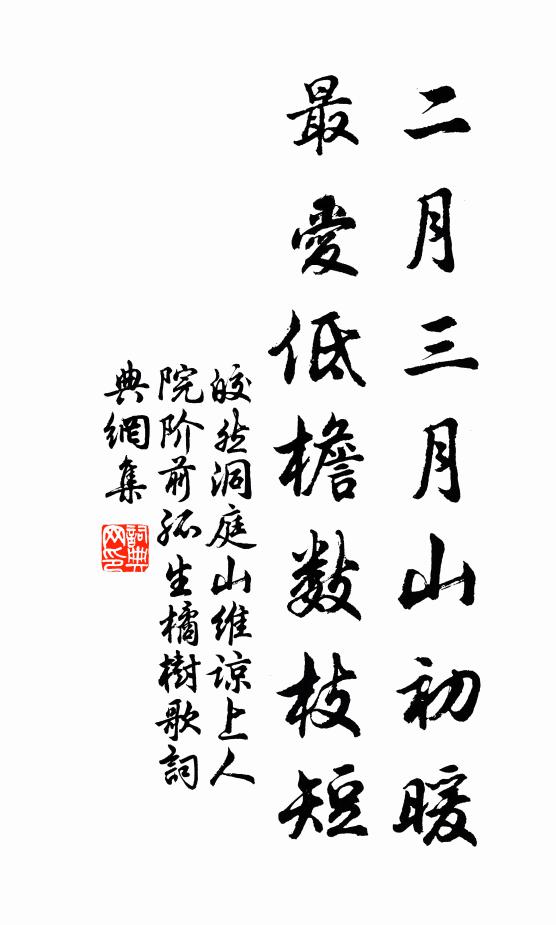 二月三月山初暖
最愛低檐數枝短
皎然洞庭山維諒上人
院阶前孤生橘樹歌詞
典網集
詞典網印